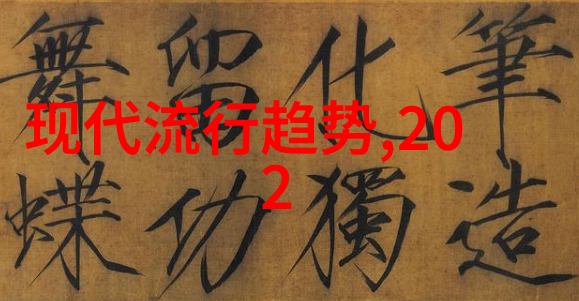 筆造
化獨
留功
舞蝶
现代流行趋势,20
2